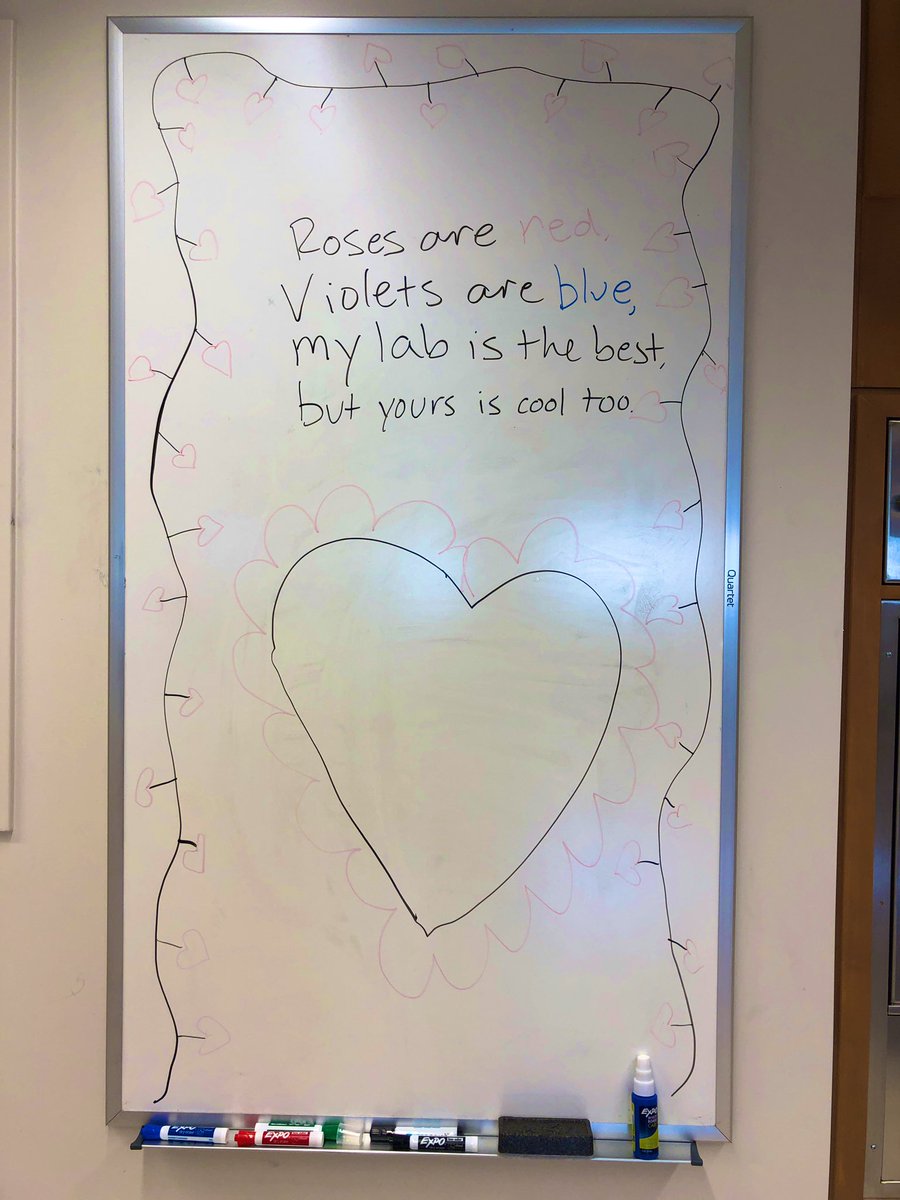 Roses are red,
Violets are blue,
my lab is the best,
but yours is cool too.
Quartet
EXPO
EXPO
EXPO
EXPO